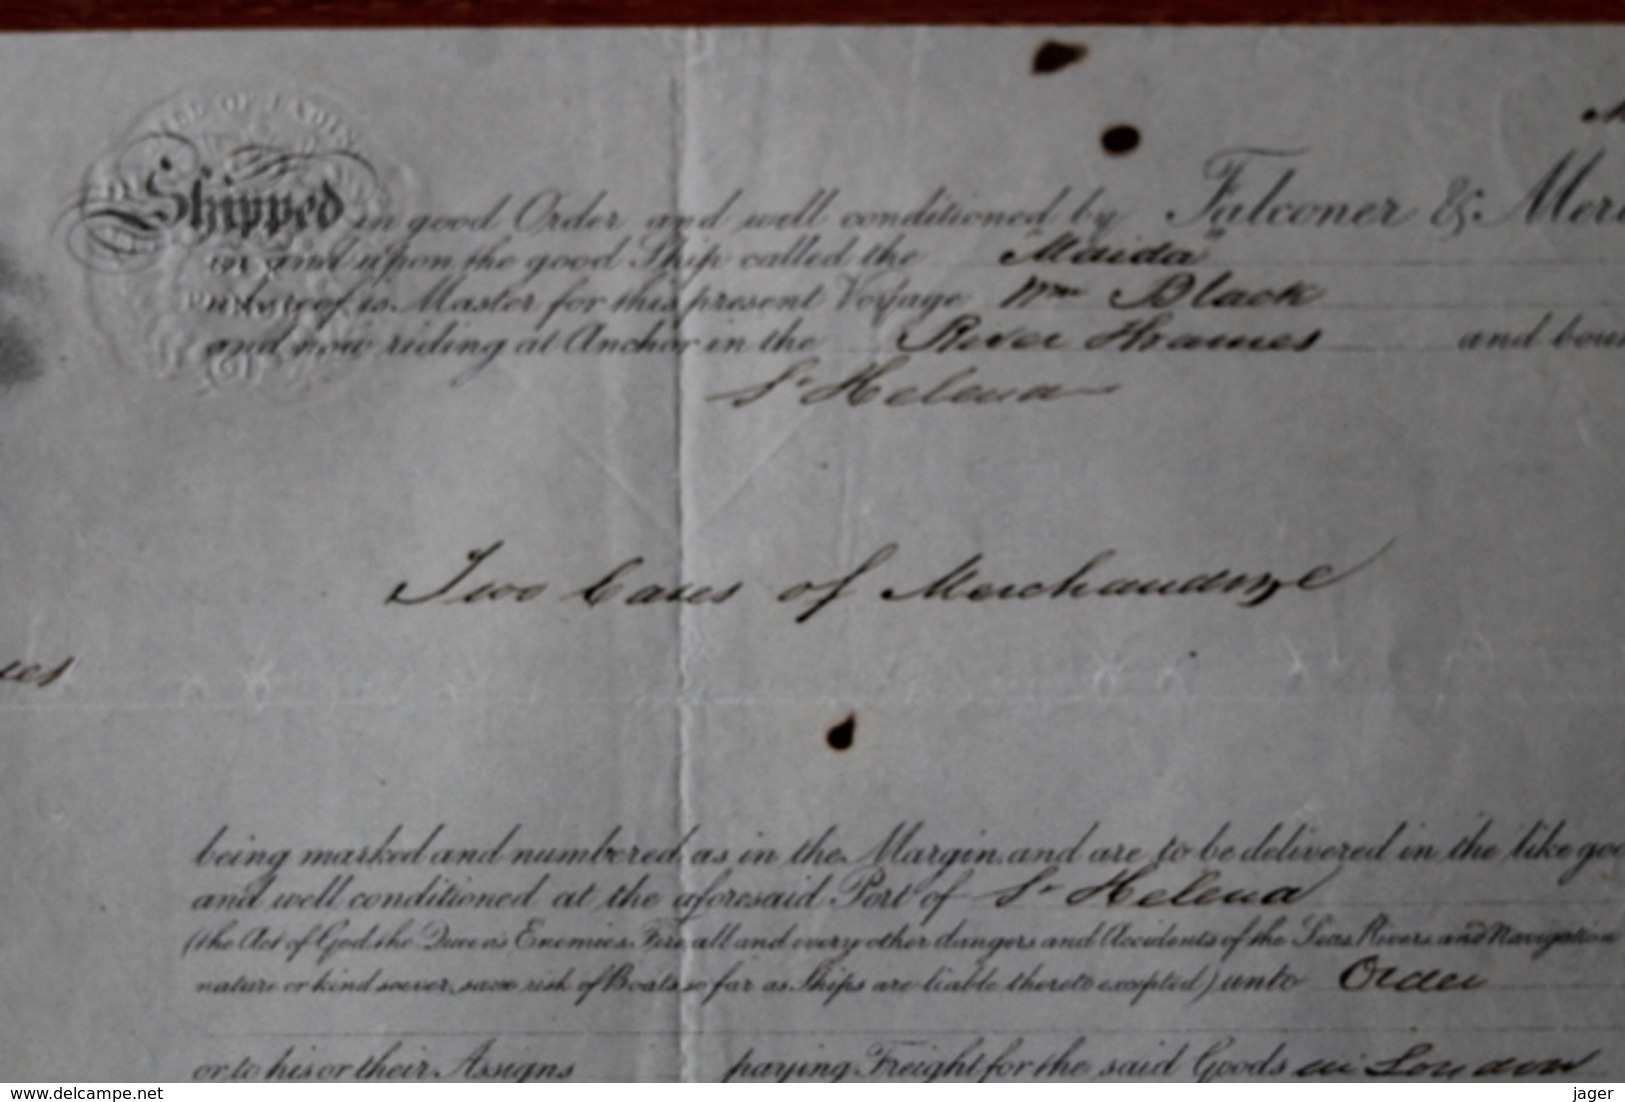 Shipped in good Order and well conditioned by Falconer & Mer
in and upon the good Ship called the "Maida"
whereof is Master for this present Voyage Wm Black
and now riding at Anchor in the River Thames and boun
St Helena
Two Cases of Merchandize
being marked and numbered as in the Margin and are to be delivered in the like goo
and well conditioned at the aforesaid Port of St Helena
(the Act of God, the Queen's Enemies, Fire, all and every other dangers and Accidents of the Seas, Rivers and Navigation
nature or kind soever, save risk of Boats, so far as Ships are liable thereto excepted) unto Order
or to his or their Assigns paying Freight for the said Goods in London
www.delcampe.net
jager